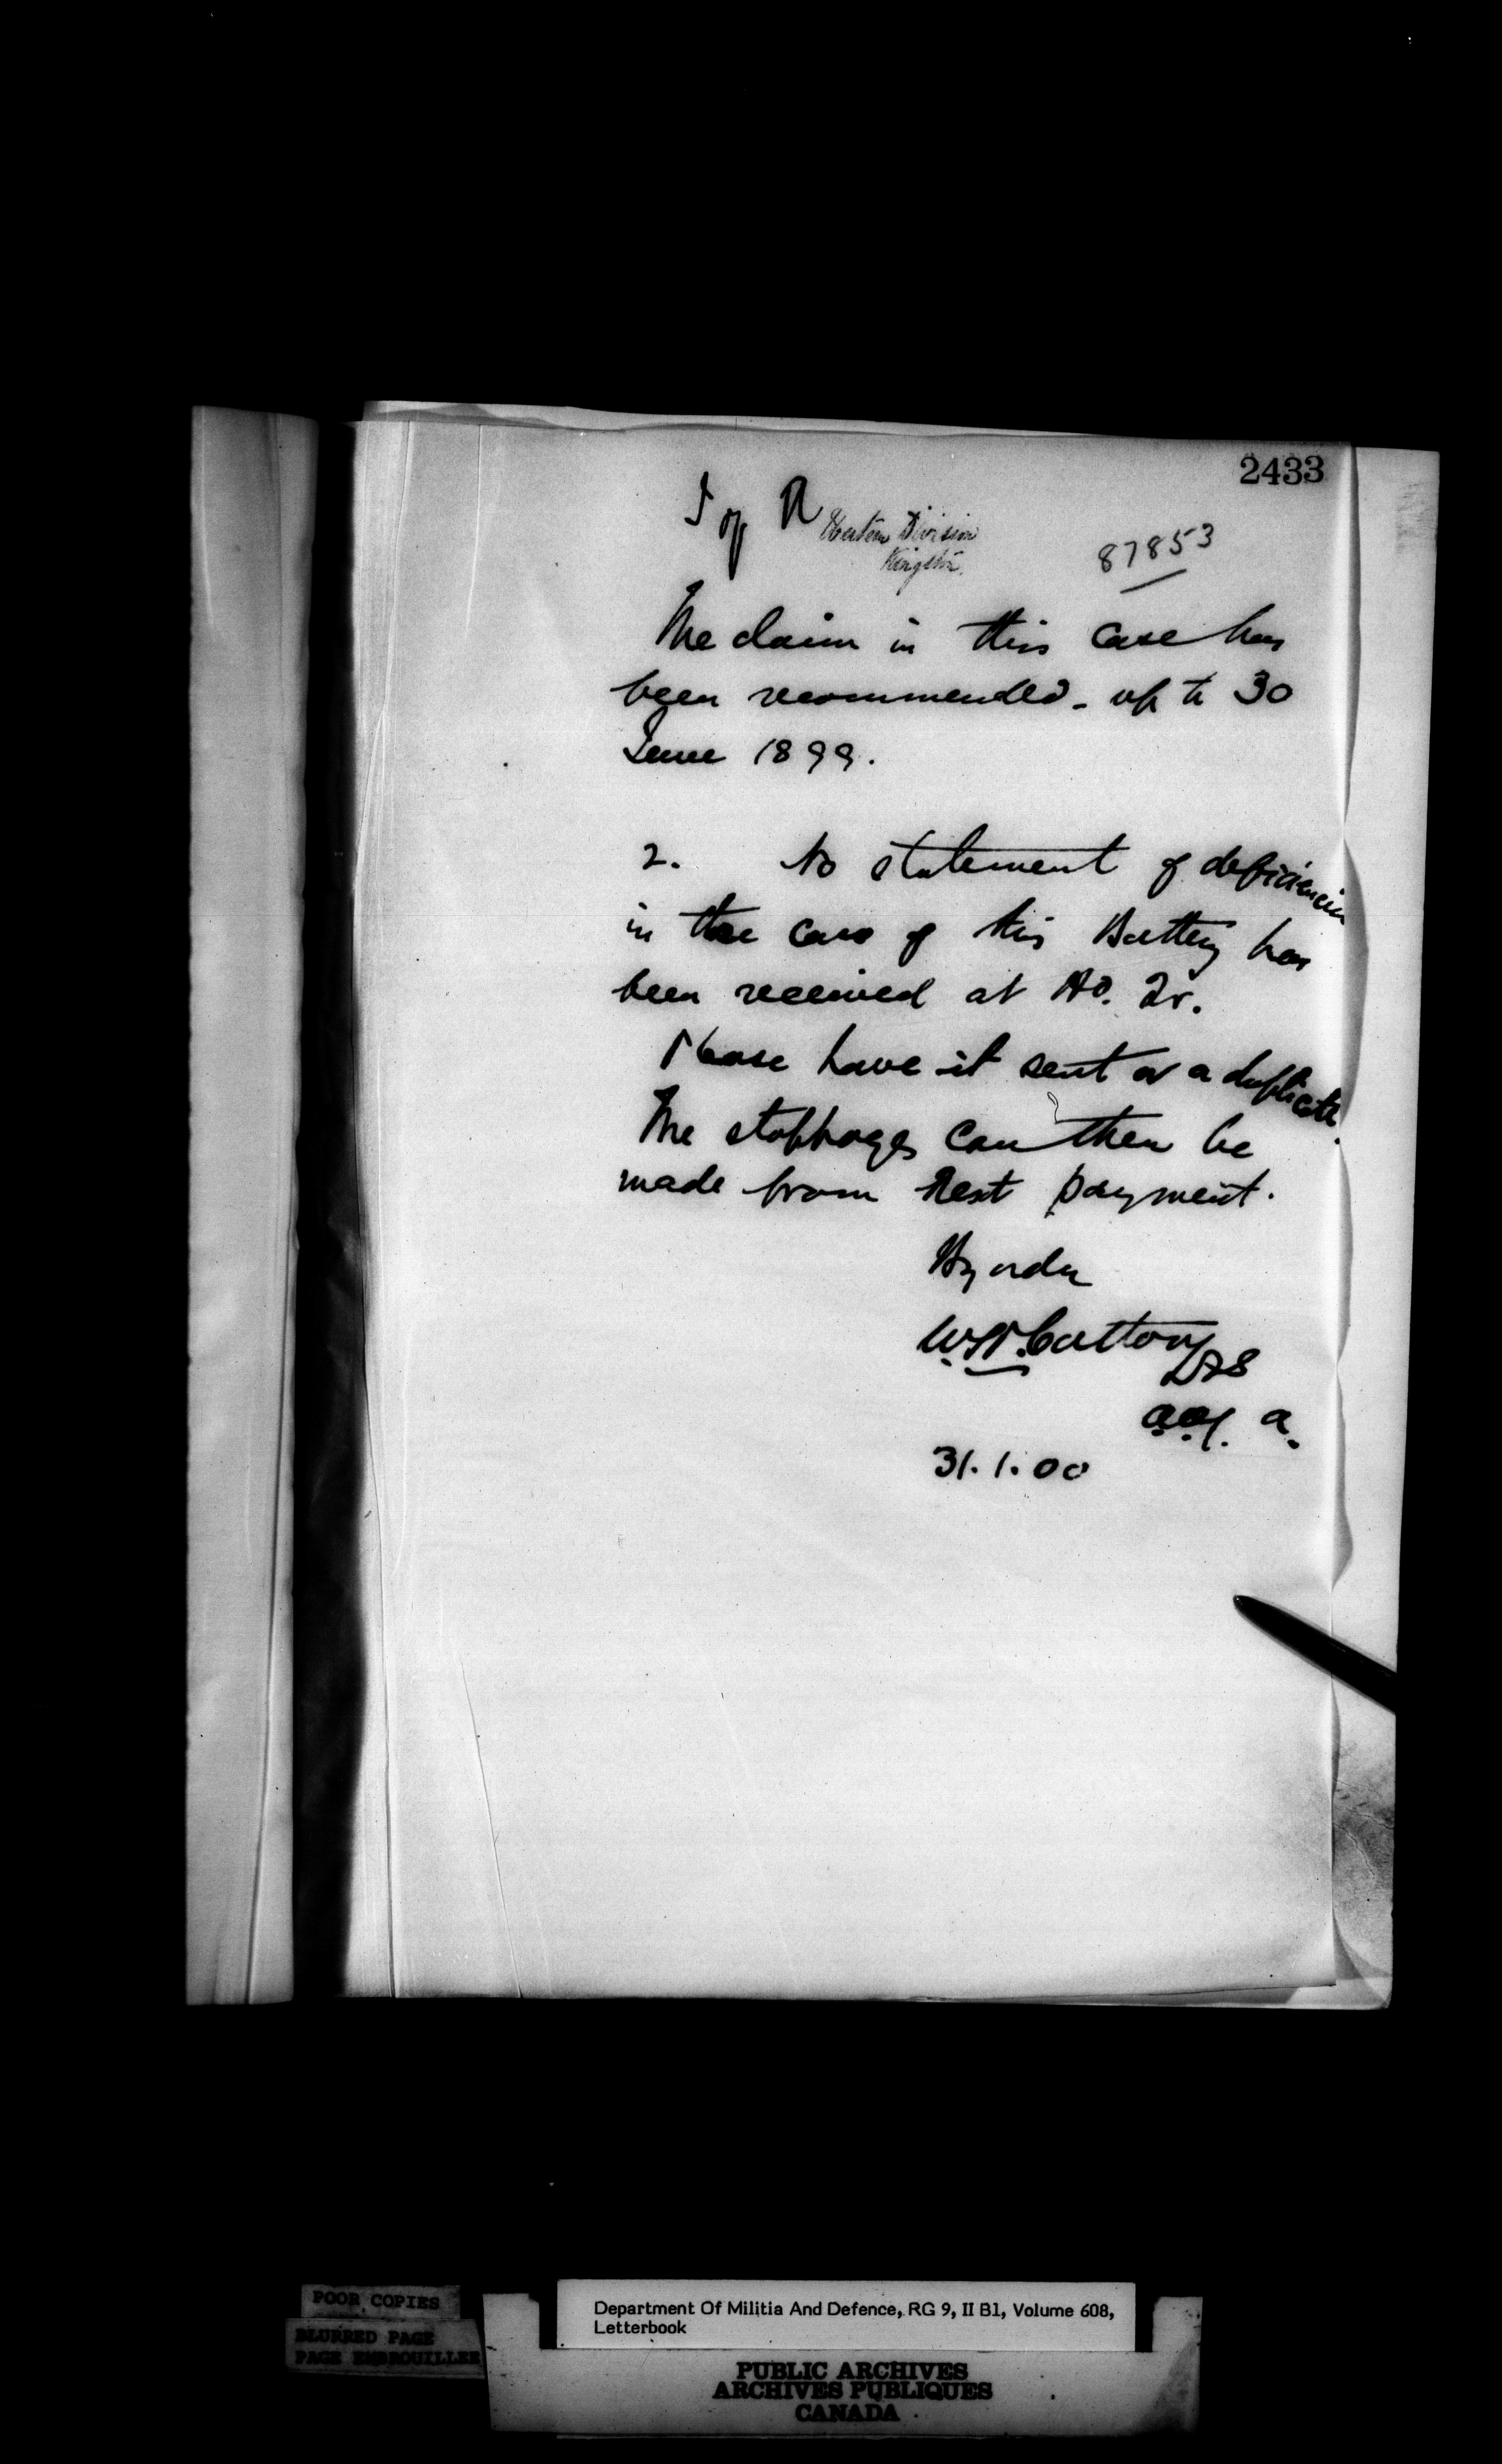 2433
I of A
Eastern Division
Kingston.
87853
The claim in this case has
been recommended - up to 30
June 1899.
2. No statement of deficiencies
in the case of this Battery has
been received at Hd. Qr.
Please have it sent or a duplicate.
The stoppages can then be
made from next payment.
By order
31.1.00
POOR COPIES
BLURRED PAGE
PAGE EMBROUILLER
Department Of Militia And Defence, RG 9, II B1, Volume 608,
Letterbook
PUBLIC ARCHIVES
ARCHIVES PUBLIQUES
CANADA